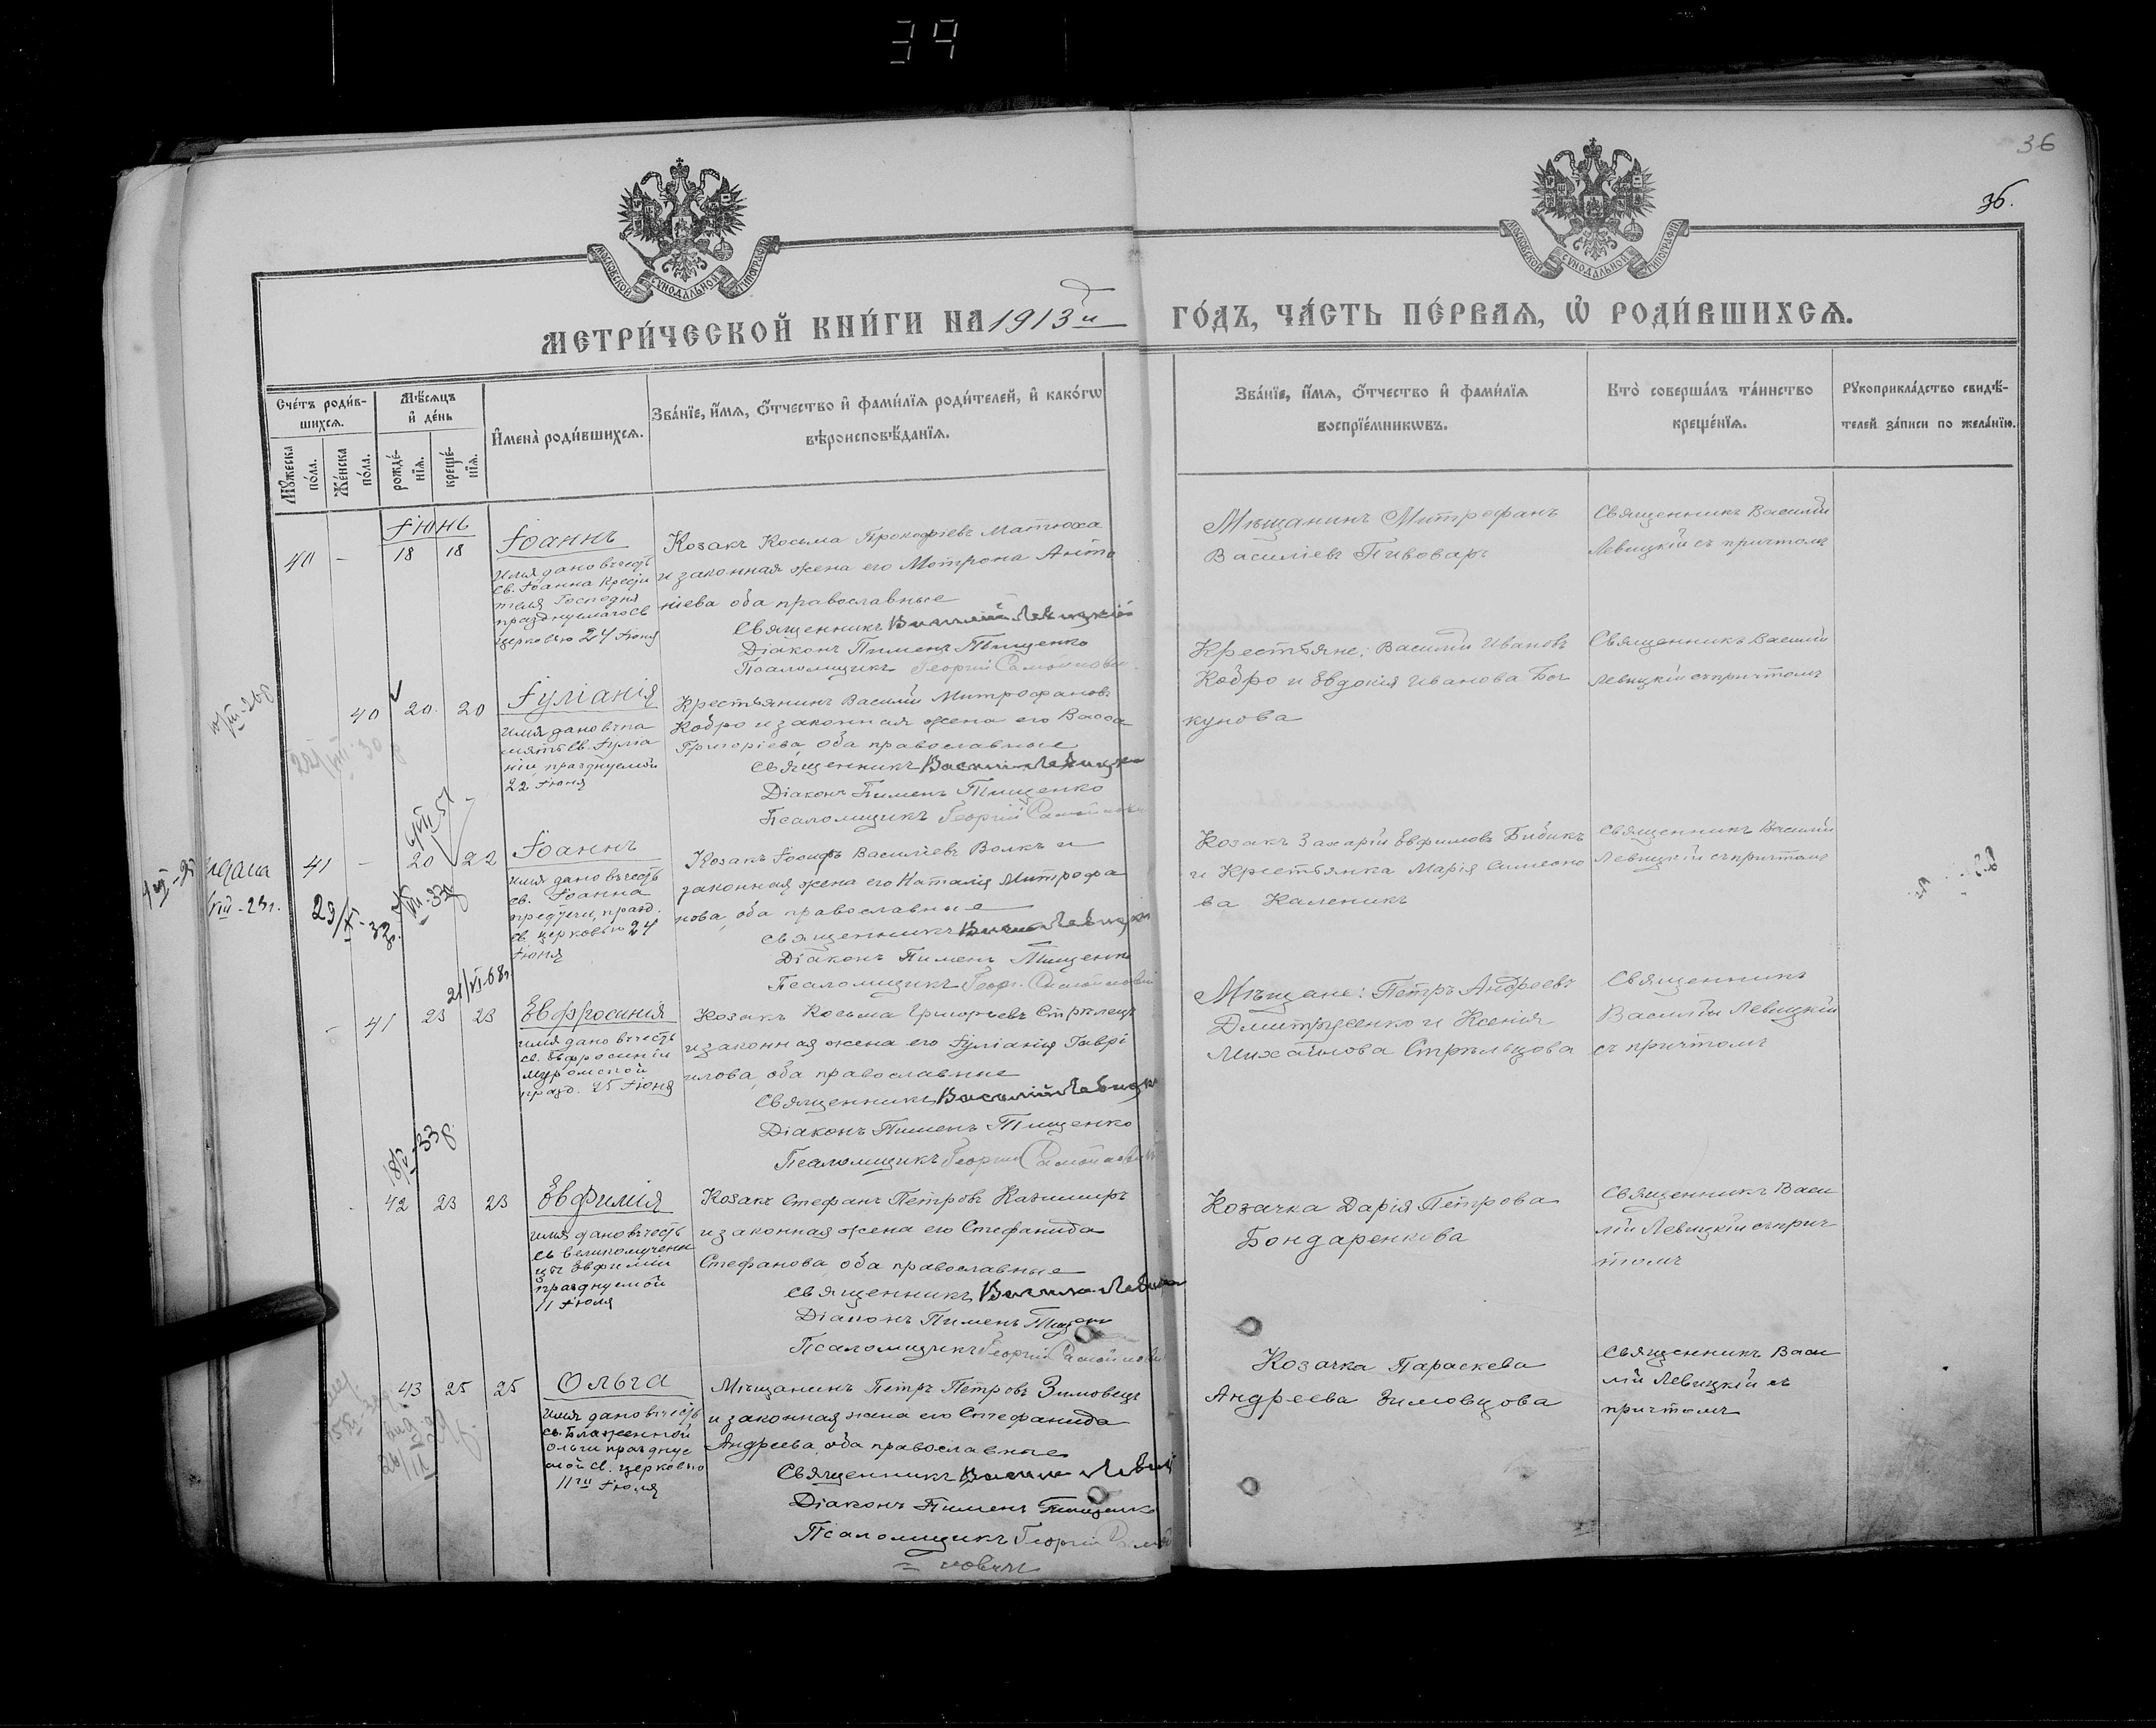 39
36
36.
МОСКОВСКОЙ СѴНОДАЛЬНОЙ ТИПОГРАФІИ
МОСКОВСКОЙ СѴНОДАЛЬНОЙ ТИПОГРАФІИ
МЕТРИ́ЧЕСКОЙ КНИ́ГИ НА 1913й ГО́ДЪ, ЧА́СТЬ ПЕ́РВАѦ, Ѽ РОДИ́ВШИХСѦ.
Сче́тъ роди́в-
шихсѧ.
Мꙋжеска
по́ла.
Же́нска
по́ла.
Мѣ́сѧцъ
и҆ де́нь
рожде́-
нїѧ.
креще́-
нїѧ.
И҆мена̀ роди́вшихсѧ.
Зва́нїе, и҆́мѧ, ѻ҆́тчество и҆ фами́лїѧ роди́телей, и҆ како́гѡ
вѣроисповѣ́данїѧ.
Зва́нїе, и҆́мѧ, ѻ҆́тчество и҆ фами́лїѧ
воспрїе́мникѡвъ.
Кто̀ соверша́лъ та́инство
креще́нїѧ.
Рꙋкоприкла́дство свидѣ́-
телей за́писи по жела́нїю.
Іюнь
40 - 18 18
Іоаннъ
Имя дано въ честь
св. Іоанна Крести
теля Господня
празднуемаго св
церковью 24 Іюня
Козакъ Косьма Прокофіевъ Матюха
и законная жена его Мотрона Анто
ніева оба православные
Священникъ Василій Левицкій
Діаконъ Пименъ Тищенко
Псаломщикъ Георгій Самойлович
Мѣщанинъ Митрофанъ
Василіевъ Пивоваръ
Священникъ Василій
Левицкій съ причтомъ
40 20 20
Іуліанія
имя дано въ па
мять св. Іулiа
ніи, празднуемой
22 Іюня
Крестьянинъ Василій Митрофановъ
Кобро и законная жена его Васса
Григоріева, оба православные
Священникъ Василій Левицкій
Діаконъ Пименъ Тищенко
Псаломщикъ Георгій Самойлович
Крестьяне: Василій Ивановъ
Кобро и Евдокія Иванова Бог
кунова
Священникъ Василій
Левицкій съ причтомъ
41 - 20 22
Іоаннъ
имя дано въ честь
св. Іоанна
предтечи, празд.
св. церковью 24
Іюня
Козакъ Іосифъ Василіевъ Волкъ и
законная жена его Наталія Митрофа
нова, оба православные
Священникъ Василій Левицкій
Діаконъ Пименъ Тищенко
Псаломщикъ Георг. Самойлович
Козакъ Захарій Евфимовъ Бибикъ
и Крестьянка Марія Симеоно
ва Каленикъ
Священникъ Василій
Левицкій съ причтомъ
29/X-32г.
21/VI-68г.
- 41 23 23
Евфросинія
имя дано въ честь
св. Евфросиніи
муромской
празд. 25 Іюня
Козакъ Косьма Григорьевъ Стрѣлецъ
и законная жена его Іуліанія Гаврі
илова, оба православные
Священникъ Василій Левицкій
Діаконъ Пименъ Тищенко
Псаломщикъ Георгій Самойлович
Мѣщане: Петръ Андреевъ
Дмитрусенко и Ксенія
Михайлова Стрѣльцова
Священникъ
Василій Левицкій
съ причтомъ
42 23 23
Евфимія
имя дано въ честь
св великомучени
цы Евфиміи
празднуемой
11 Іюля
Козакъ Стефанъ Петровъ Казимиръ
и законная жена его Стефанида
Стефанова оба православные
Священникъ Василій Левицкій
Діаконъ Пименъ Тищенко
Псаломщикъ Георгій Самойлович
Козачка Дарія Петрова
Бондаренкова
Священникъ Васи
лій Левицкій съ прич
томъ
43 25 25
Ольга
имя дано въ честь
св. Блаженной
Ольги праздну
мой св. церковью
11го Іюля
Мѣщанинъ Петръ Петровъ Зимовецъ
и законная жена его Стефанида
Андреева, оба православные
Священникъ Василій Левицкій
Діаконъ Пименъ Тищенко
Псаломщикъ Георгій Самой
= ловичъ
Козачка Параскева
Андреева Зимовцова
Священникъ Васи
лій Левицкій съ
причтомъ